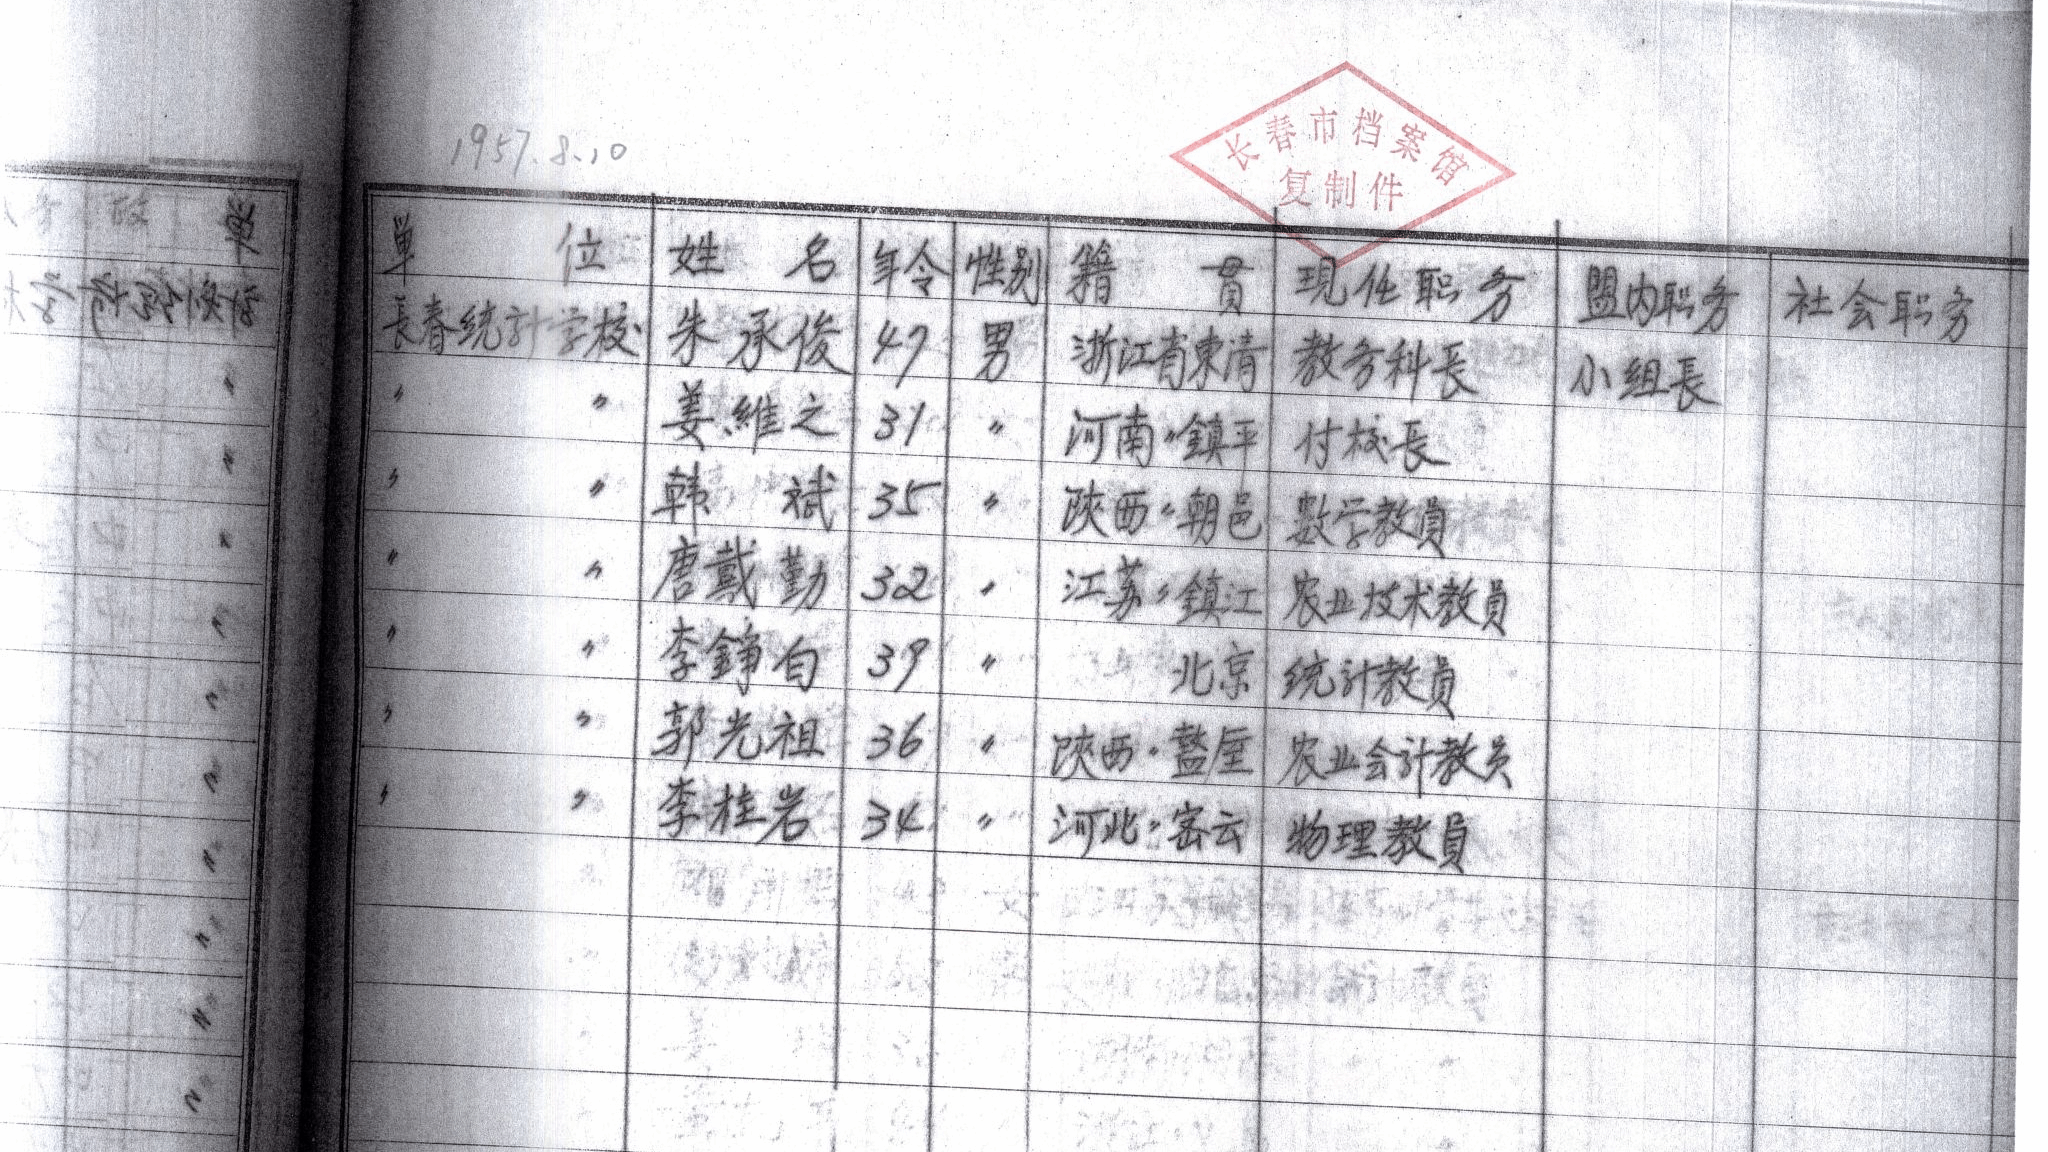 1957.8.10
长春市档案馆
复制件
单 位 姓 名 年令 性别 籍 贯 现任职务 盟内职务 社会职务
長春统計学校 朱承俊 47 男 浙江省東清 教务科長 小组長
〃 〃 姜維之 31 〃 河南〃鎮平 付校長
〃 〃 韩 斌 35 〃 陝西〃朝邑 数学教員
〃 〃 唐戴勤 32 〃 江苏〃鎮江 农业技术教員
〃 〃 李錚白 39 〃 北京 统計教員
〃 〃 郭光祖 36 〃 陝西〃盩厔 农业会計教員
〃 〃 李桂岩 34 〃 河北〃密云 物理教員